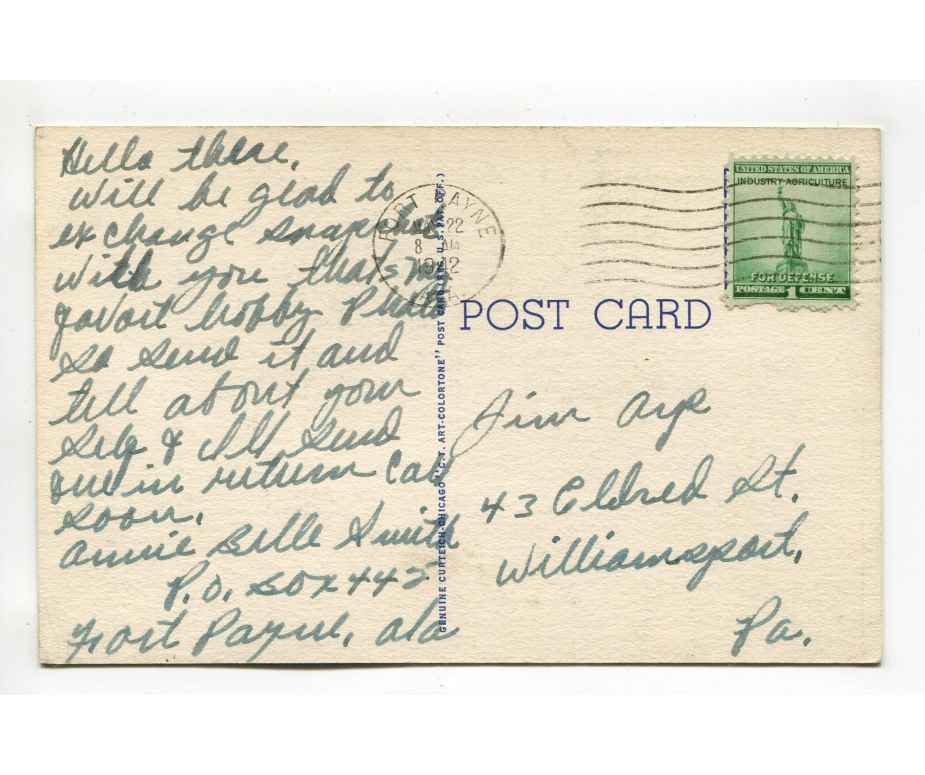 Hello there,
Will be glad to
exchange snapshots
with you thats my
favort hobby Photo
so send it and
tell about your
self & Ill send
one in return
soon.
Annie Belle Smith
P.O. Box 442
Fort Payne, Ala
GENUINE CURTEICH-CHICAGO "C.T. ART-COLORTONE" POST CARD (REG. U.S. PAT. OFF.)
FORT PAYNE
22
8 AM
1942
ALA.
UNITED STATES OF AMERICA
INDUSTRY AGRICULTURE
FOR DEFENSE
POSTAGE 1 CENT
POST CARD
Jim Arp
43 Eldred St.
Williamsport,
Pa.